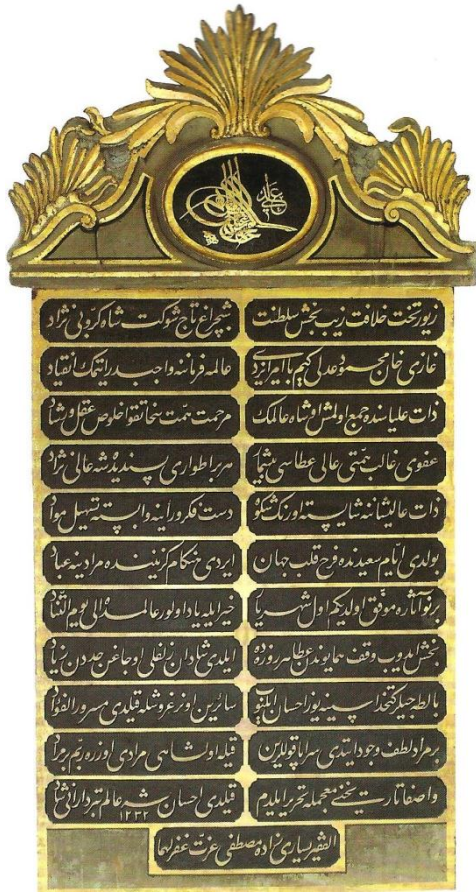 عدلی
زیور تخت خلافت زیب بخش سلطنت شبچراغ تاج شوکت شاه کروبی نژاد
غازی خان محمود عدلی کیم با امر ایزدی عالمه فرماننه واجبدر ایتمک انقیاد
ذات علیاسنده جمع اولمش او شاه عالمک مرحمت همت سخا تقوا خلوص عقل رشاد
عفوی غالب همتی عالی عطاسی بیشمار هر بر اطواری پسندیده شه عالی نژاد
ذات عالیشاننه شایسته اورنک شکوه دست فکر و راینه وابسته تسهیل مواد
بولدی ایام سعیدنده فرح قلب جهان ایردی هنکام کزیننده مرادینه عباد
بر نو آثاره موفق اولدیکم اول شهریار خیر ایله یاد اولنور عالمده الی یوم التناد
بخش ایدوب وقف همایوندن عطالر ایلدی شادان زلفلی اوجاغن حددن زیاد
بالطه جیلر کتخداسینه یوز احسان ایلیوب سائرین اونر غروشله قیلدی مسرور الفؤاد
بر مراد لطف وجود ایتدی سراپا قوللرین قیله اول شاهی مرادی اوزره ربم بر مراد
واصفا تاریخنی معجمله تحریر ایلدم قیلدی احسان شه عالم تبردارانی شاد
١٢٣٢
الفقیر یساری زاده مصطفی عزت غفر لهما